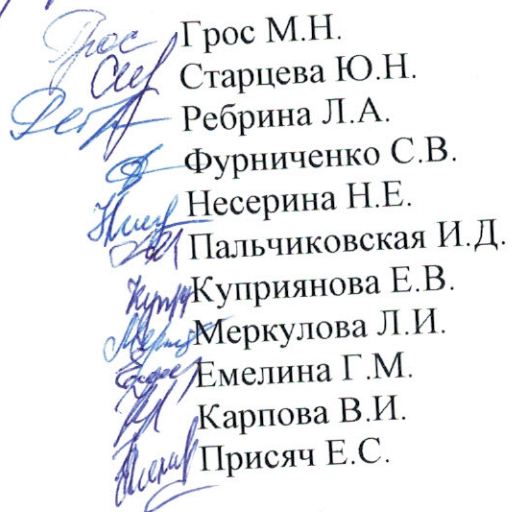 Грос М.Н.
Старцева Ю.Н.
Ребрина Л.А.
Фурниченко С.В.
Несерина Н.Е.
Пальчиковская И.Д.
Куприянова Е.В.
Меркулова Л.И.
Емелина Г.М.
Карпова В.И.
Присяч Е.С.